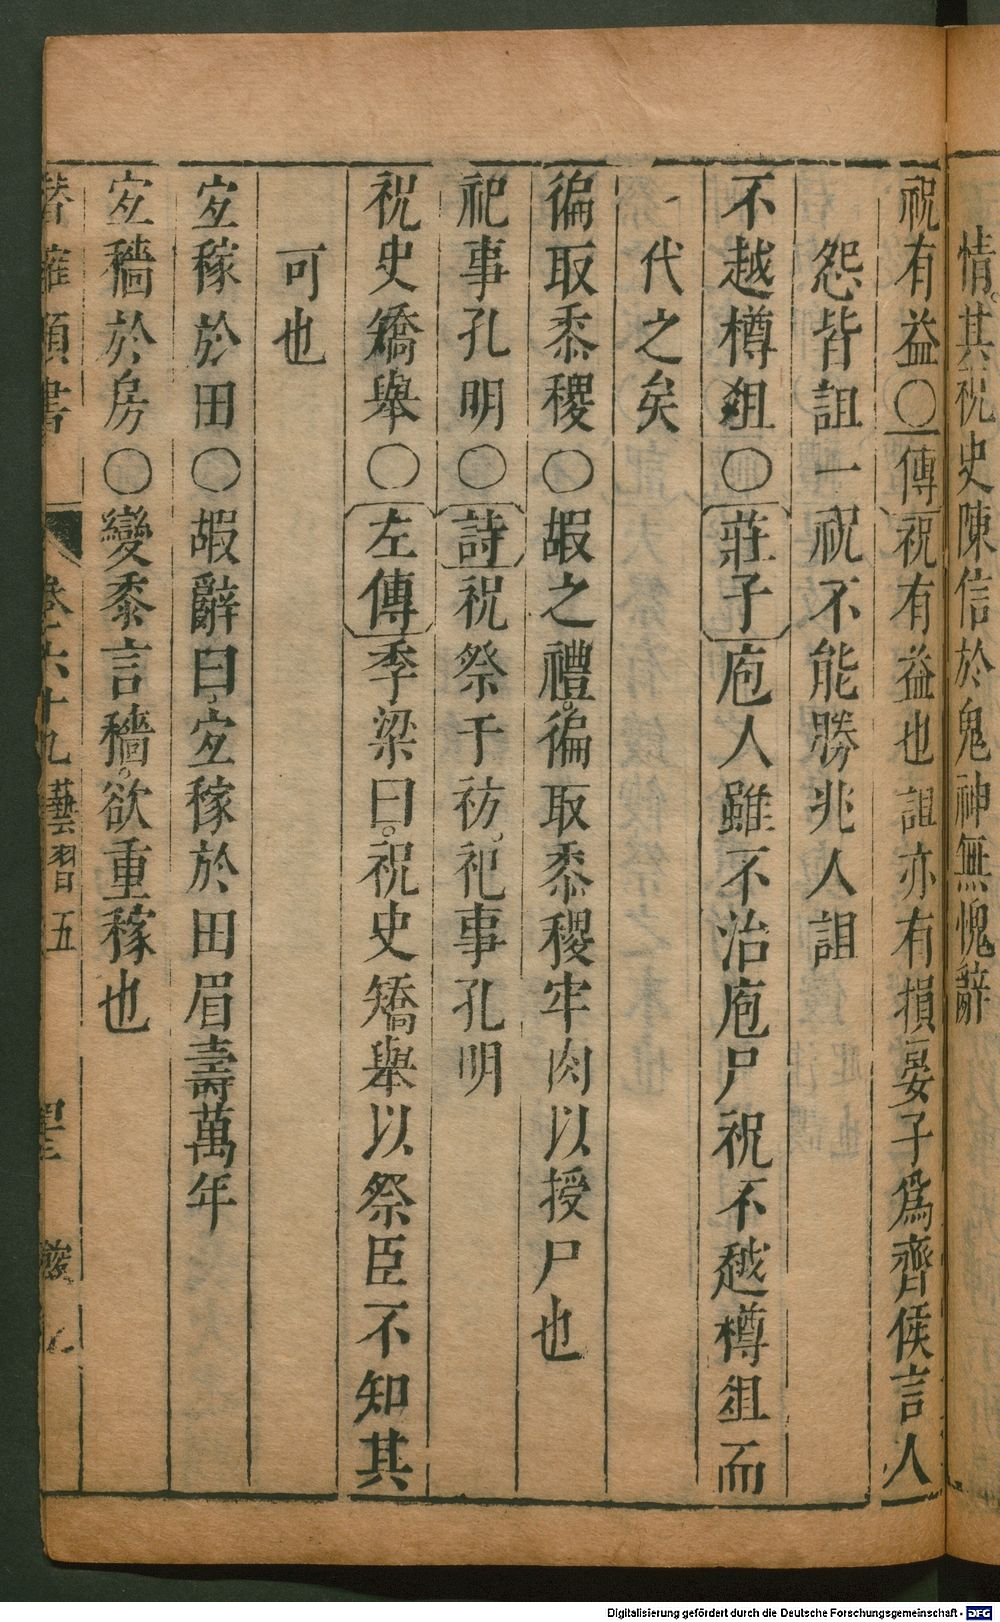 情其祝史陳信於鬼神無愧辭
祝有益〇傳祝有益也詛亦有損晏子為齊侯言人
怨皆詛一祝不能勝兆人詛
不越樽俎〇莊子庖人雖不治庖尸祝不越樽俎而
代之矣
徧取黍稷〇嘏之禮徧取黍稷牢肉以授尸也
祀事孔明〇詩祝祭于祊祀事孔明
祝史矯舉〇左傳季梁曰祝史矯舉以祭臣不知其
可也
宐稼於田〇嘏辭曰宐稼於田眉壽萬年
宐穡於房〇變黍言穡欲重稼也
類書 卷六十九 藝習五
Digitalisierung gefördert durch die Deutsche Forschungsgemeinschaft - DFG